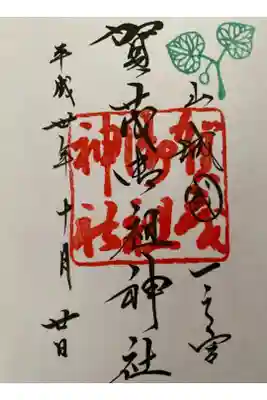 山城國一之宮
賀茂御祖神社
平成廿年十月廿日
賀茂
御祖
神社